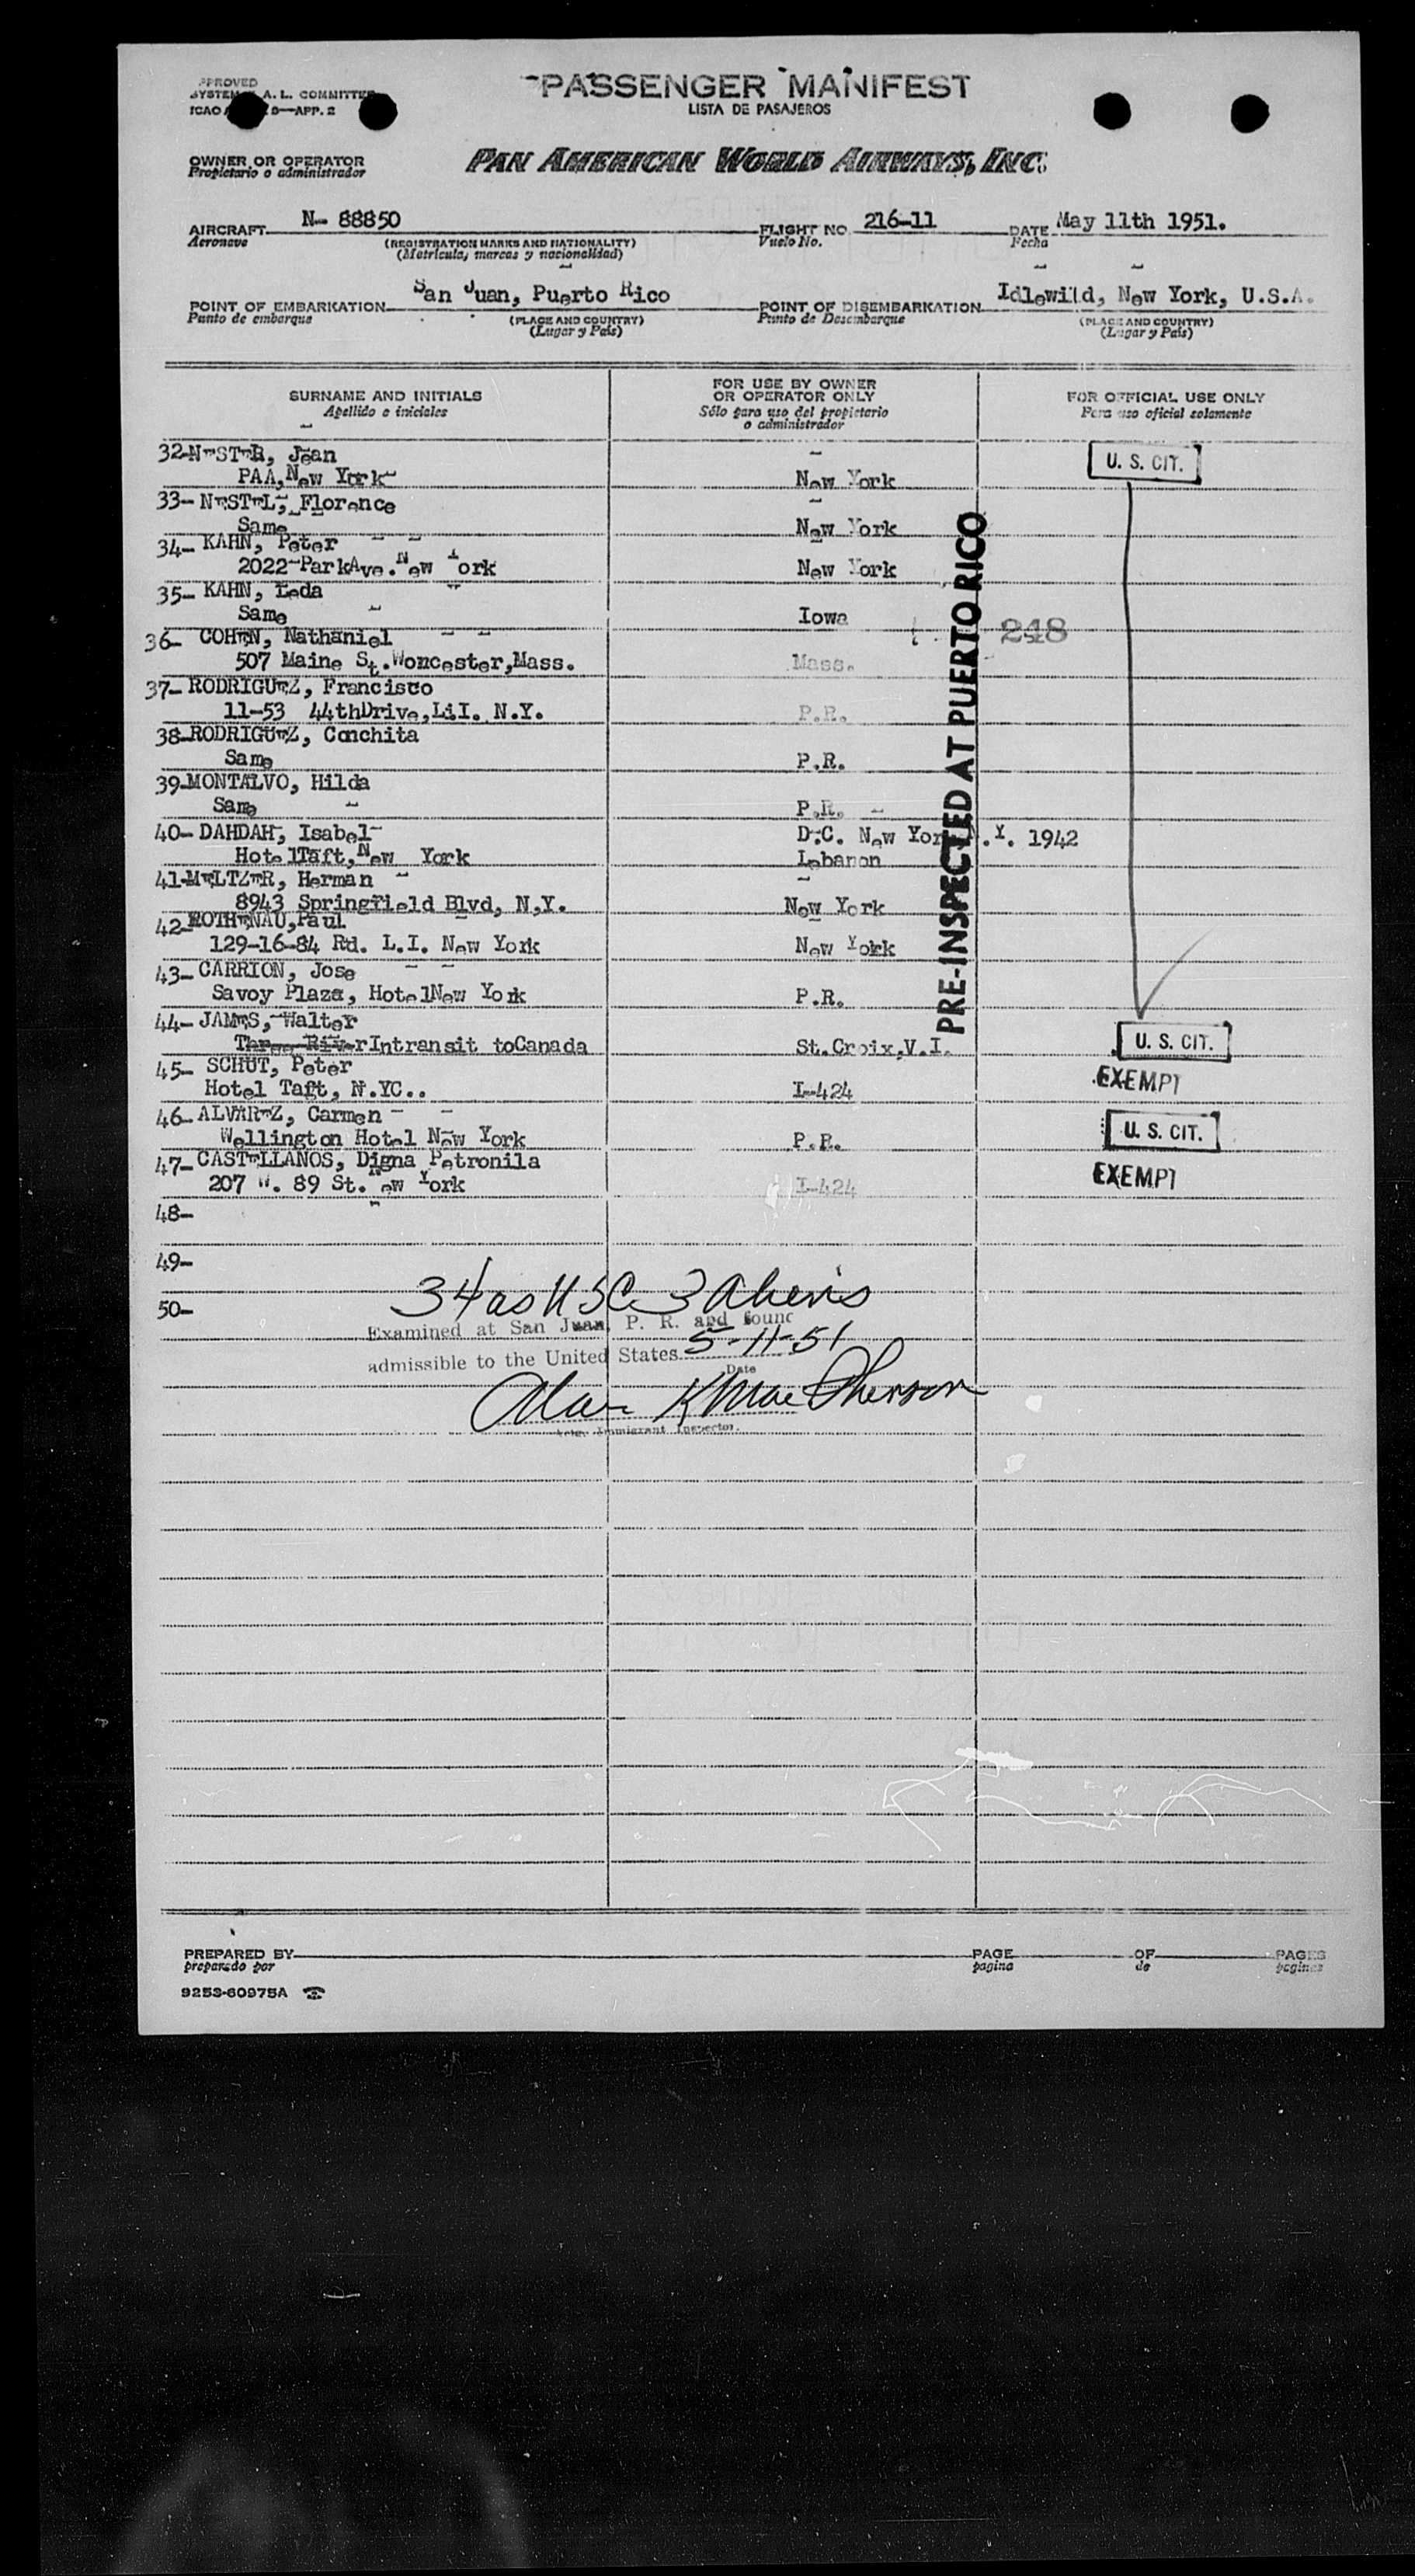 APPROVED
SYSTEM A. L. COMMITTEE
ICAO 9—APP. 2
PASSENGER MANIFEST
LISTA DE PASAJEROS
OWNER OR OPERATOR
Propietario o administrador
PAN AMERICAN WORLD AIRWAYS, INC.
AIRCRAFT N- 88850 FLIGHT NO. 216-11 DATE May 11th 1951.
Aeronave (REGISTRATION MARKS AND NATIONALITY) Vuelo No. Fecha
(Matricula, marcas y nacionalidad)
POINT OF EMBARKATION San Juan, Puerto Rico POINT OF DISEMBARKATION Idlewild, New York, U.S.A.
Punto de embarque (PLACE AND COUNTRY) Punto de Desembarque (PLACE AND COUNTRY)
(Lugar y País) (Lugar y País)
SURNAME AND INITIALS FOR USE BY OWNER OR OPERATOR ONLY FOR OFFICIAL USE ONLY
Apellido e iniciales Sólo para uso del propietario o administrador Para uso oficial solamente
32-NESTER, Jean U. S. CIT.
PAA,New York New York
33- NESTEL, Florence
Same New York
34- KAHN, Peter
2022-ParkAve.New York New York
35- KAHN, Leda
Same Iowa
36- COHEN, Nathaniel 248
507 Maine St.Woncester,Mass. Mass.
37- RODRIGUEZ, Francisco
11-53 44thDrive,L.I. N.Y. P.R.
38-RODRIGUEZ, Conchita
Same P.R.
39-MONTALVO, Hilda
Same P.R.
40- DAHDAH, Isabel D.C. New York N.Y. 1942
HotelTaft,New York Lebanon
41-MELTZER, Herman
8943 Springfield Blvd, N,Y. New York
42-ROTHENAU,Paul
129-16-84 Rd. L.I. New York New York
43- CARRION, Jose
Savoy Plaza, HotelNew York P.R.
44- JAMES, Walter
Three River Intransit toCanada St.Croix,V.I. U. S. CIT.
45- SCHUT, Peter
Hotel Taft, N.YC.. I-424 EXEMPT
46- ALVAREZ, Carmen
Wellington Hotel New York P.R. U. S. CIT.
47- CASTELLANOS, Digna Petronila
207 W. 89 St. New York I-424 EXEMPT
48-
49-
50-
PRE-INSPECTED AT PUERTO RICO
34 as USC 3 Aliens
Examined at San Juan, P. R. and found
admissible to the United States 5-11-51
Date
Alan K MacPherson
Immigrant Inspector.
PREPARED BY PAGE OF PAGES
preparado por pagina de paginas
9253-60975A